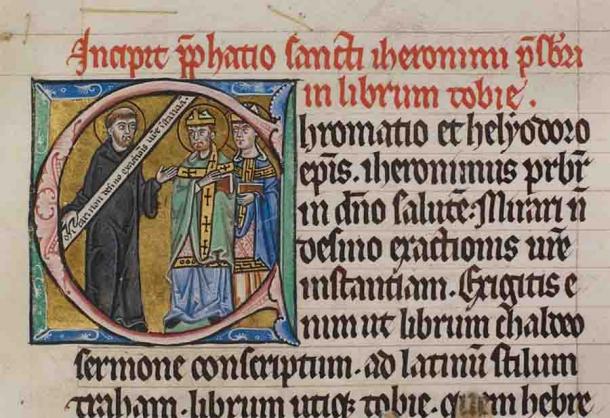 Incipit p̄phatio sancti iheronimi p̄sb̄ri
in librum tobie.
hromatio et helyodoro
ep̄is. iheronimus prb̄r
in dn̄o salutē. Mirari n̄
desino exactionis urē
instantiam. Exigitis e
nim ut librum chaldeo
sermone conscriptum. ad latinū stilum
traham. librum utiqꝫ tobie. quem hebre
mirari non desino exactionis ure instantiam